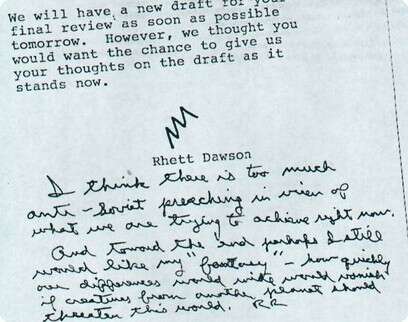 We will have a new draft for your
final review as soon as possible
tomorrow. However, we thought you
would want the chance to give us
your thoughts on the draft as it
stands now.
Rhett Dawson
I think there is too much
anti-Soviet preaching in view of
what we are trying to achieve right now.
And toward the end perhaps I still
would like my "fantasy" – how quickly
our differences world wide would vanish
if creatures from another planet should
threaten this world. RR